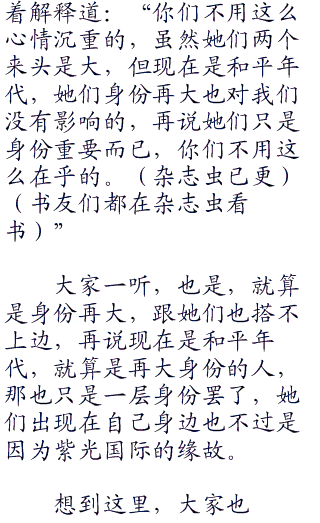 着解释道：“你们不用这么
心情沉重的，虽然她们两个
来头是大，但现在是和平年
代，她们身份再大也对我们
没有影响的，再说她们只是
身份重要而已，你们不用这
么在乎的。（杂志虫已更）
（书友们都在杂志虫看
书）”
大家一听，也是，就算
是身份再大，跟她们也搭不
上边，再说现在是和平年
代，就算是再大身份的人，
那也只是一层身份罢了，她
们出现在自己身边也不过是
因为紫光国际的缘故。
想到这里，大家也